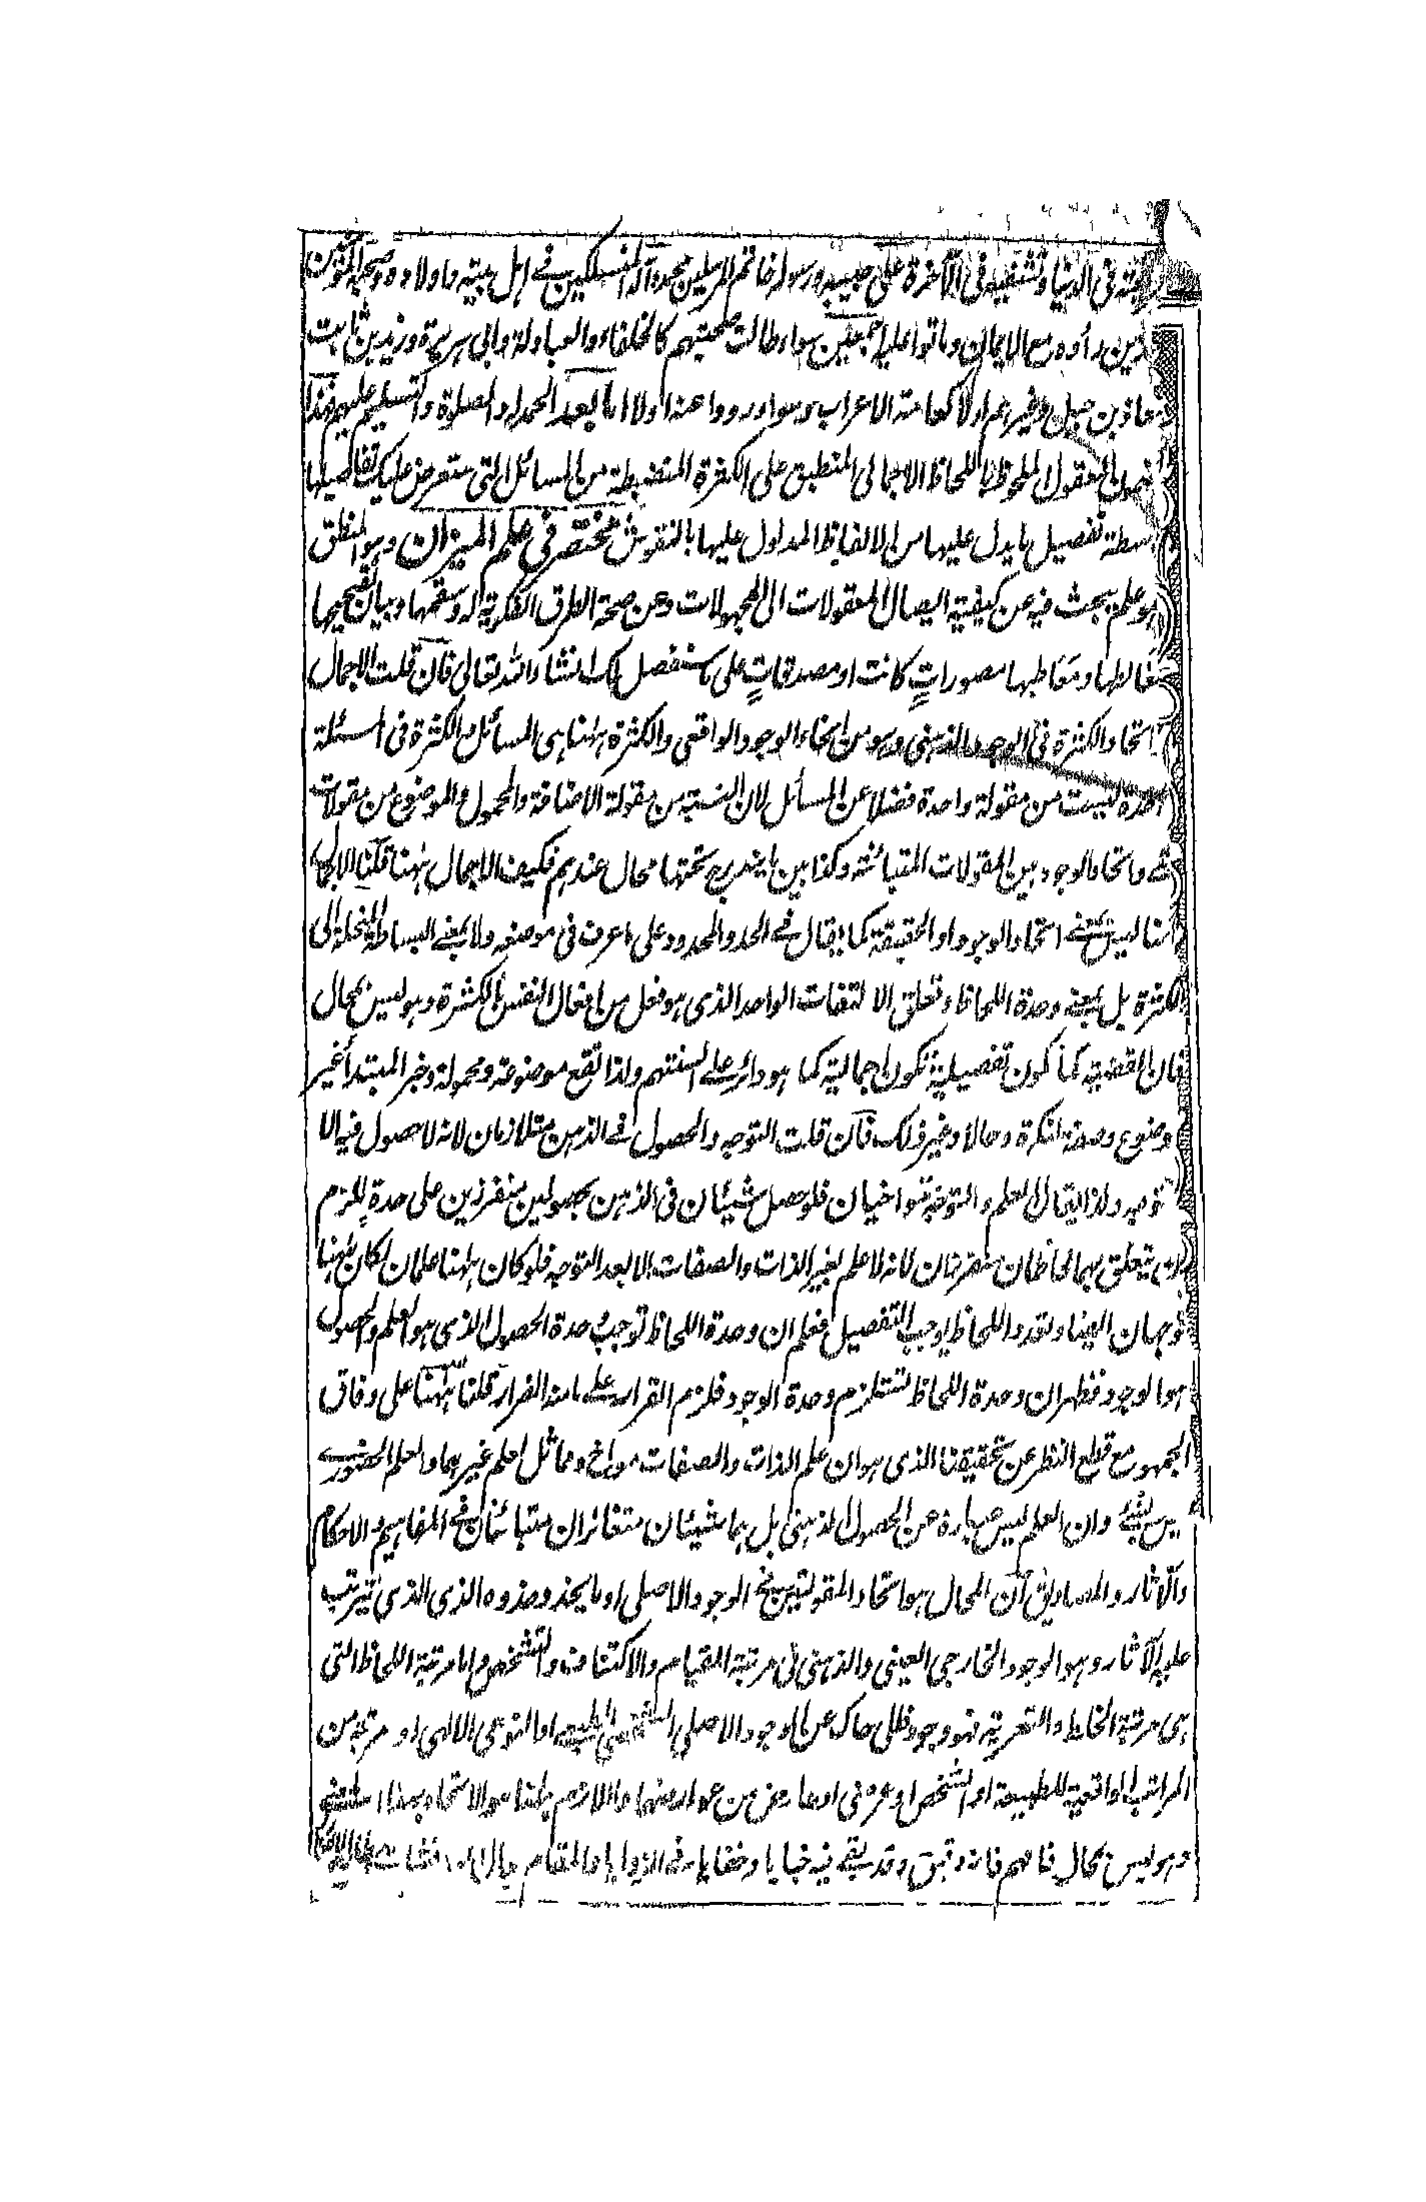 فى الدنيا وتشفيعه فى الآخرة على حبيبه ورسوله خاتم المرسلين محمد وآله المنسلكين فے اہل بيته واولاده وصحبه
الذين رأوه مع الايمان وماتوا عليه اجمعين سواء طالت صحبتهم كالخلفاء والعبادلة وابى ہريرة وزيد بن ثابت
معاذ بن جبل وغيرهم اولا كعامة الاعراب وسواء رووا عنه اولا اما بعد الحمد له والصلوة والتسليم عليهم فهذا
المعقول الملحوظ باللحاظ الاجمالى المنطبق على الكثرة المنضبطة من المسائل التى ستعرض عليك تفاصيلها
تفصيل ما يدل عليها من الالفاظ المدلول عليها بالنقوش مختصر فى علم الميزان وہو المنطق
ہو علم يبحث فيه عن كيفية ايصال المعقولات الى المجهولات وعن صحة الطرق الفكرية له وسقمها وبيان
مغالطها ومغاطبها مصورات كانت او مصدقات على ما سنفصل لك انشاء الله تعالى فان قلت الاجمال
اتحاد الكثرة فى الوجود الذهنى وہو من انحاء الوجود الواقعى والكثرة ہہنا ہى المسائل والكثرة فى مسئلة
واحدة ليست من مقولة واحدة فضلا عن المسائل لان النسبة من مقولة الاضافة والمحمول والموضوع من مقولات
شے واتحاد الوجود بين المقولات المتبائنة وكذا بين ما يندرج تحتها محال عندہم فكيف الاجمال ہہنا قلنا الاجمال
ہہنا ليس بمعنے اتحاد الوجود او الحقيقة كما يقال فے الحد والمحدود على ما عرف فى موضعه ولا بمعنے البساطة المنحلة الى
الكثرة بل بمعنے وحدة اللحاظ وتعلق الالتفات الواحد الذى ہو فعل من افعال النفس بالكثرة وہو ليس بمحال
فان القضية كما تكون تفصيلية تكون اجمالية كما ہو دائر على السنتهم ولذا تقع موضوعة ومحمولة وخبر المبتدأ غير
موضوع وصفة لنكرة وحالا وغير ذلك فان قلت التوجه والحصول فے الذهن متلازمان لانه لا حصول فيه الا
توجه ولذا يقال العلم والتوجه تواخيان فلو حصل شيئان فى الذهن بحصولين منفرزين على حدة يلزم
ان يتعلق بهما لحاظان متفرزان لانه لا علم بغير الذات والصفات الا بعد التوجه فلو كان ہہنا علمان لكان ہہنا
توجهان ايضا وتعدد اللحاظ يوجب التفصيل فعلم ان وحدة اللحاظ توجب وحدة الحصول الذى ہو العلم والحصول
ہو الوجود فظهر ان وحدة اللحاظ تستلزم وحدة الوجود فلزم القرار على ما منه الفرار قلنا ہہنا على وفاق
الجمهور مع قطع النظر عن تحقيقنا الذى ہو ان علم الذات والصفات مواخ ومماثل لعلم غيرہما والعلم الحضورى
ليس بشئ وان العلم ليس عبارة عن الحصول الذهنى بل ہما شيئان متغائران متبائنان فے المفاہيم والاحكام
والآثار والمصاديق ان المحال ہو اتحاد المقولتين فے الوجود الاصلى او ما يحذو حذوه الذى الذى يترتب
عليه الآثار وہو الوجود الخارجى العينى والذهنى فى مرتبة القيام والاكتناف والتشخص واما مرتبة اللحاظ التى
ہى مرتبة الخلط والتعرية فهو وجود ظلى حاك عن الوجود الاصلى الشخصى او النوعى الالهى او مرتبة من
المراتب الواقعية للطبيعة او الشخص او عرض او معارض من عوارضهما واللازم ہہنا ہو الاتحاد بهذا
وہو ليس بمحال فافهم فانه دقيق وقد بقے فيه خبايا وخفايا فے الزوايا والمقام